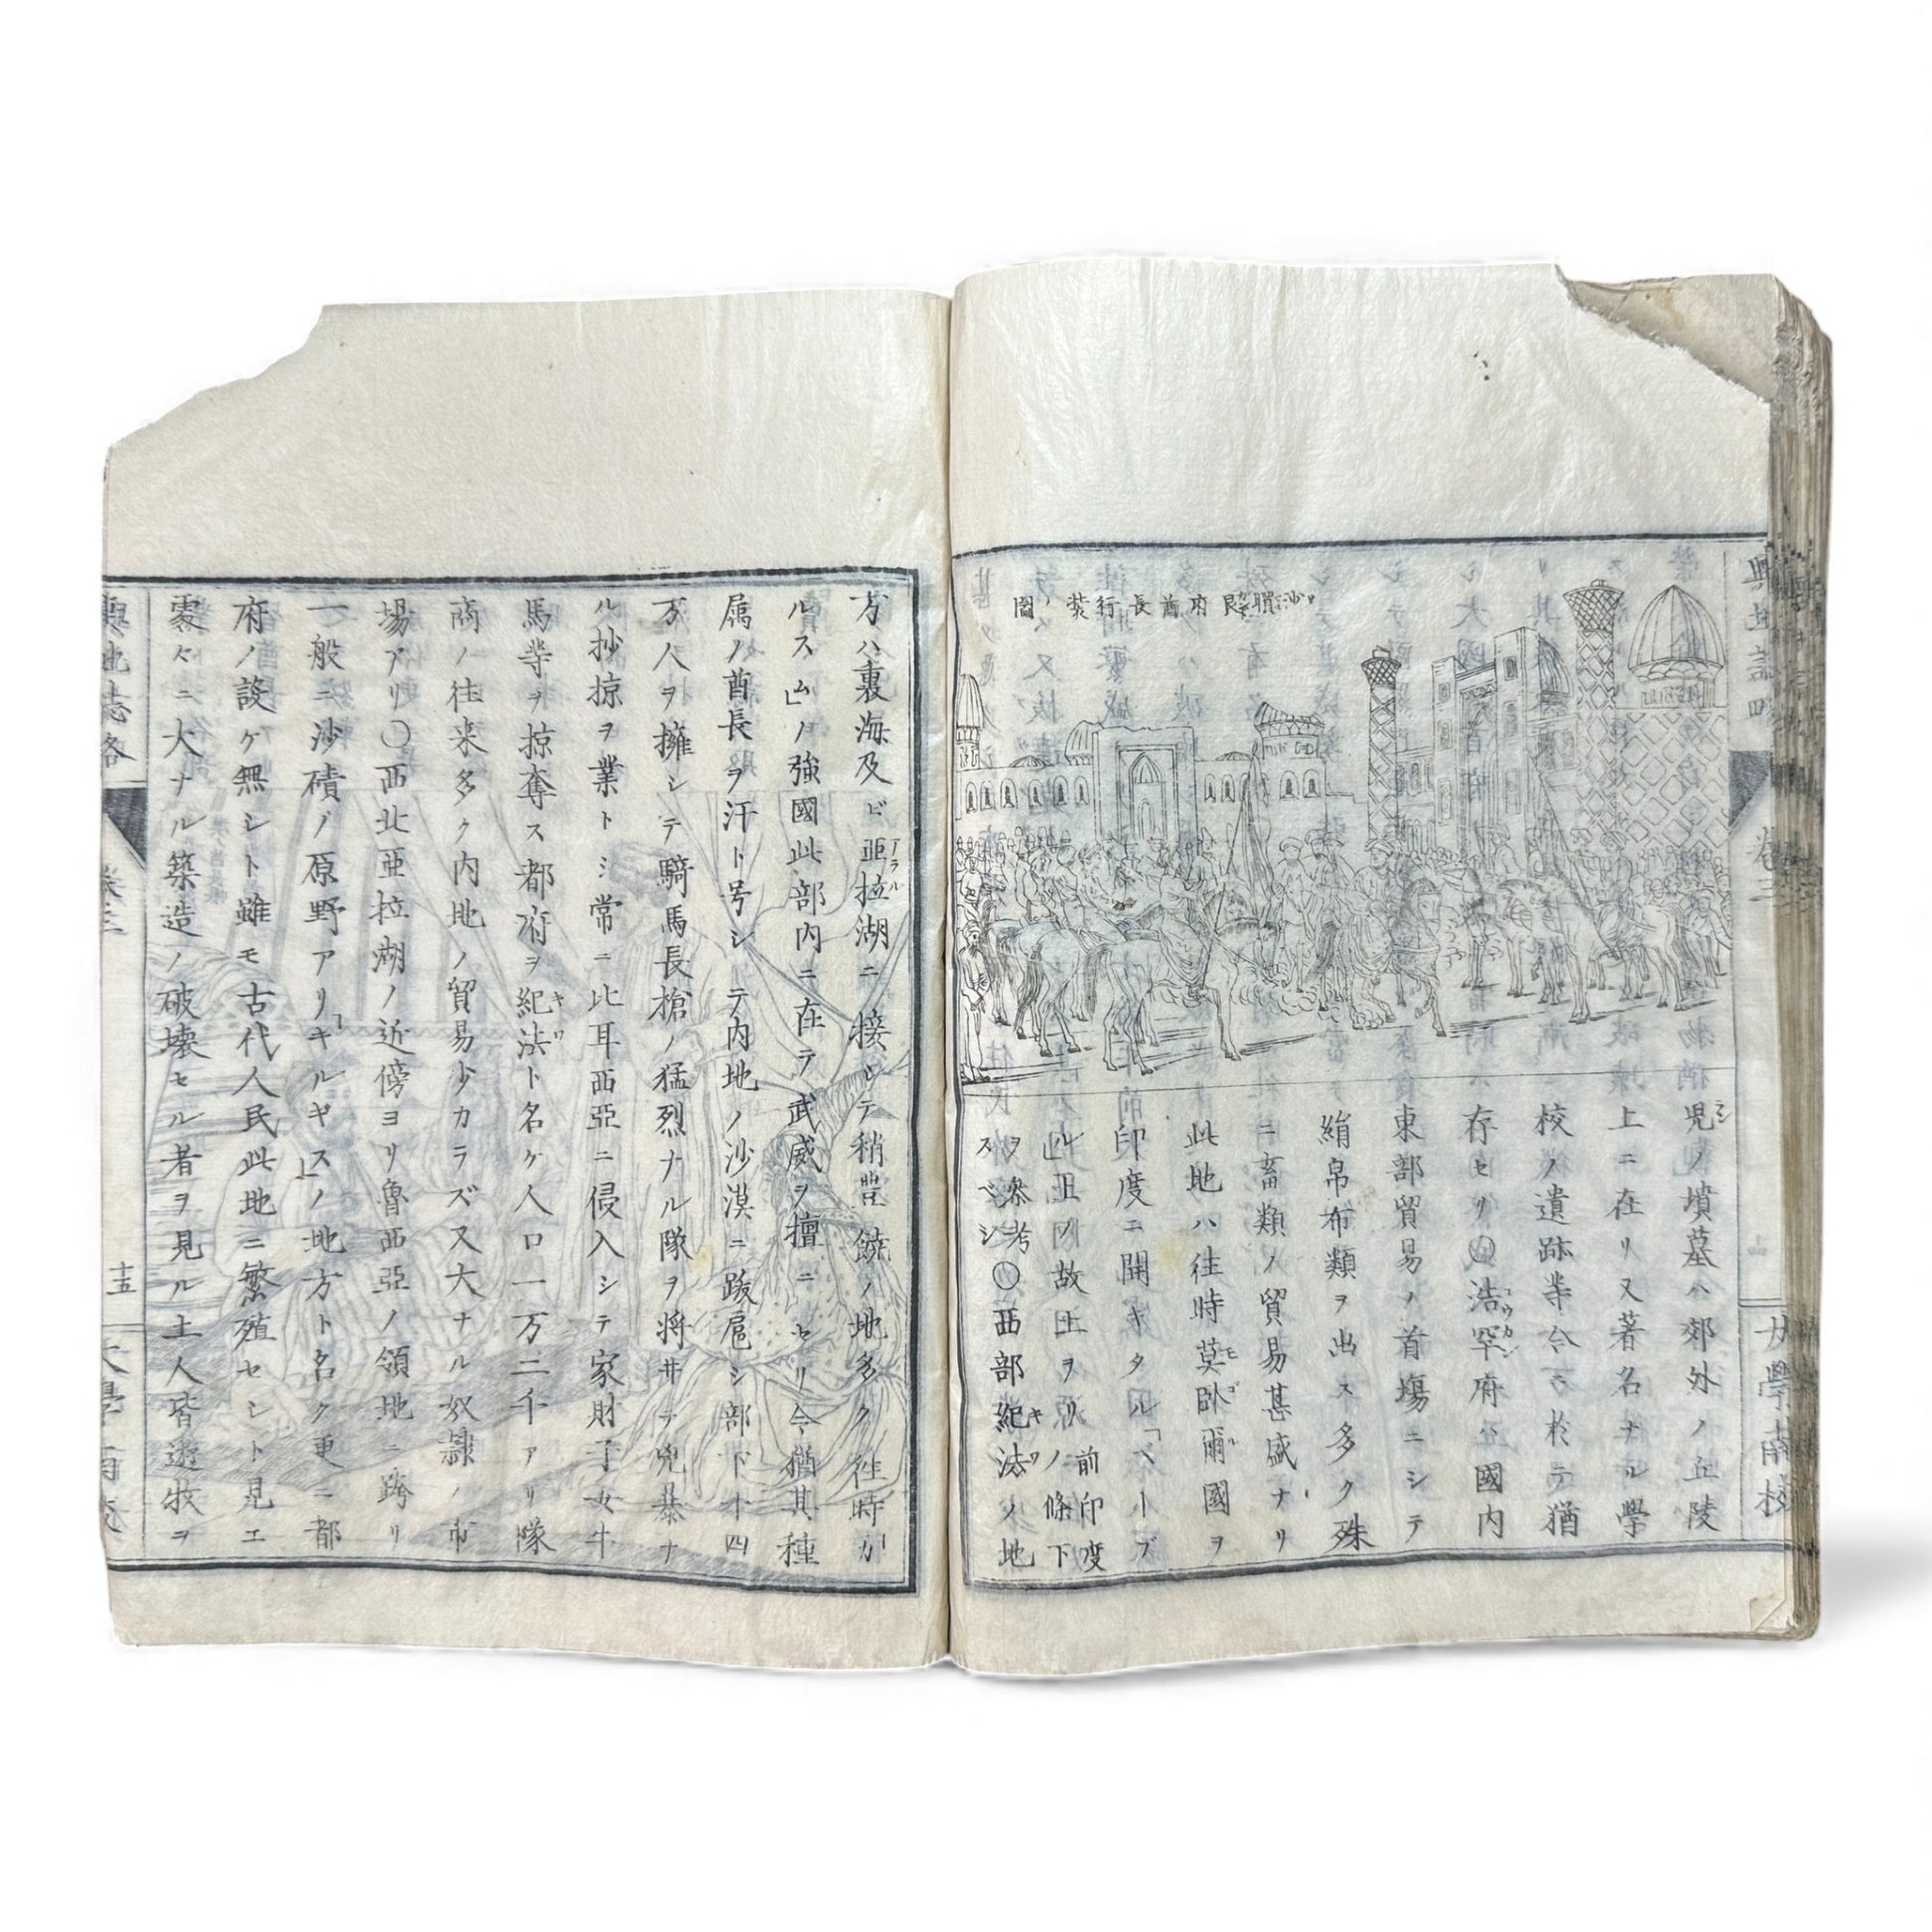 沙瞷尓罕府酋長行装ノ図
児ノ墳墓ハ郊外ノ丘陵
上ニ在リ又著名ナル學
校ノ遺跡等今ニ於テ猶
存セリ○浩罕府ハ國内
東部貿易ノ首場ニシテ
絹帛布類ヲ出ス多ク殊
ニ畜類ノ貿易甚盛ナリ
此地ハ往時莫臥爾國ヲ
印度ニ開キタル「ベーブ
ル」王ノ故土ヲリ前印度ノ條下
ヲ参考スベシ○西部紀法ノ地
方ハ裏海及ビ亜拉湖ニ接シテ稍豊饒ノ地多ク往時「カ
ルスム」ノ強國此部内ニ在テ武威ヲ擅ニセリ今猶其種
属ノ酋長ヲ汗ト号シテ内地ノ沙漠ニ跋扈シ部下十四
万人ヲ擁シテ騎馬長槍ノ猛烈ナル隊ヲ将井テ兇暴ナ
ル抄掠ヲ業トシ常ニ比耳西亞ニ侵入シテ家財子女牛
馬等ヲ掠奪ス都府ヲ紀法ト名ケ人口一万二千アリ隊
商ノ往来多ク内地ノ貿易少カラズ又大ナル奴隷ノ市
場アリ○西北亜拉湖ノ近傍ヨリ魯西亞ノ領地ニ跨リ
一般ニ沙磧ノ原野アリ「キルギス」ノ地方ト名ク更ニ都
府ノ設ケ無シト雖モ古代人民此地ニ繁殖セシト見エ
寥々ニ大ナル築造ノ破壊セル者ヲ見ル土人皆遊牧ヲ
輿地誌畧
巻三
十五
大學南校